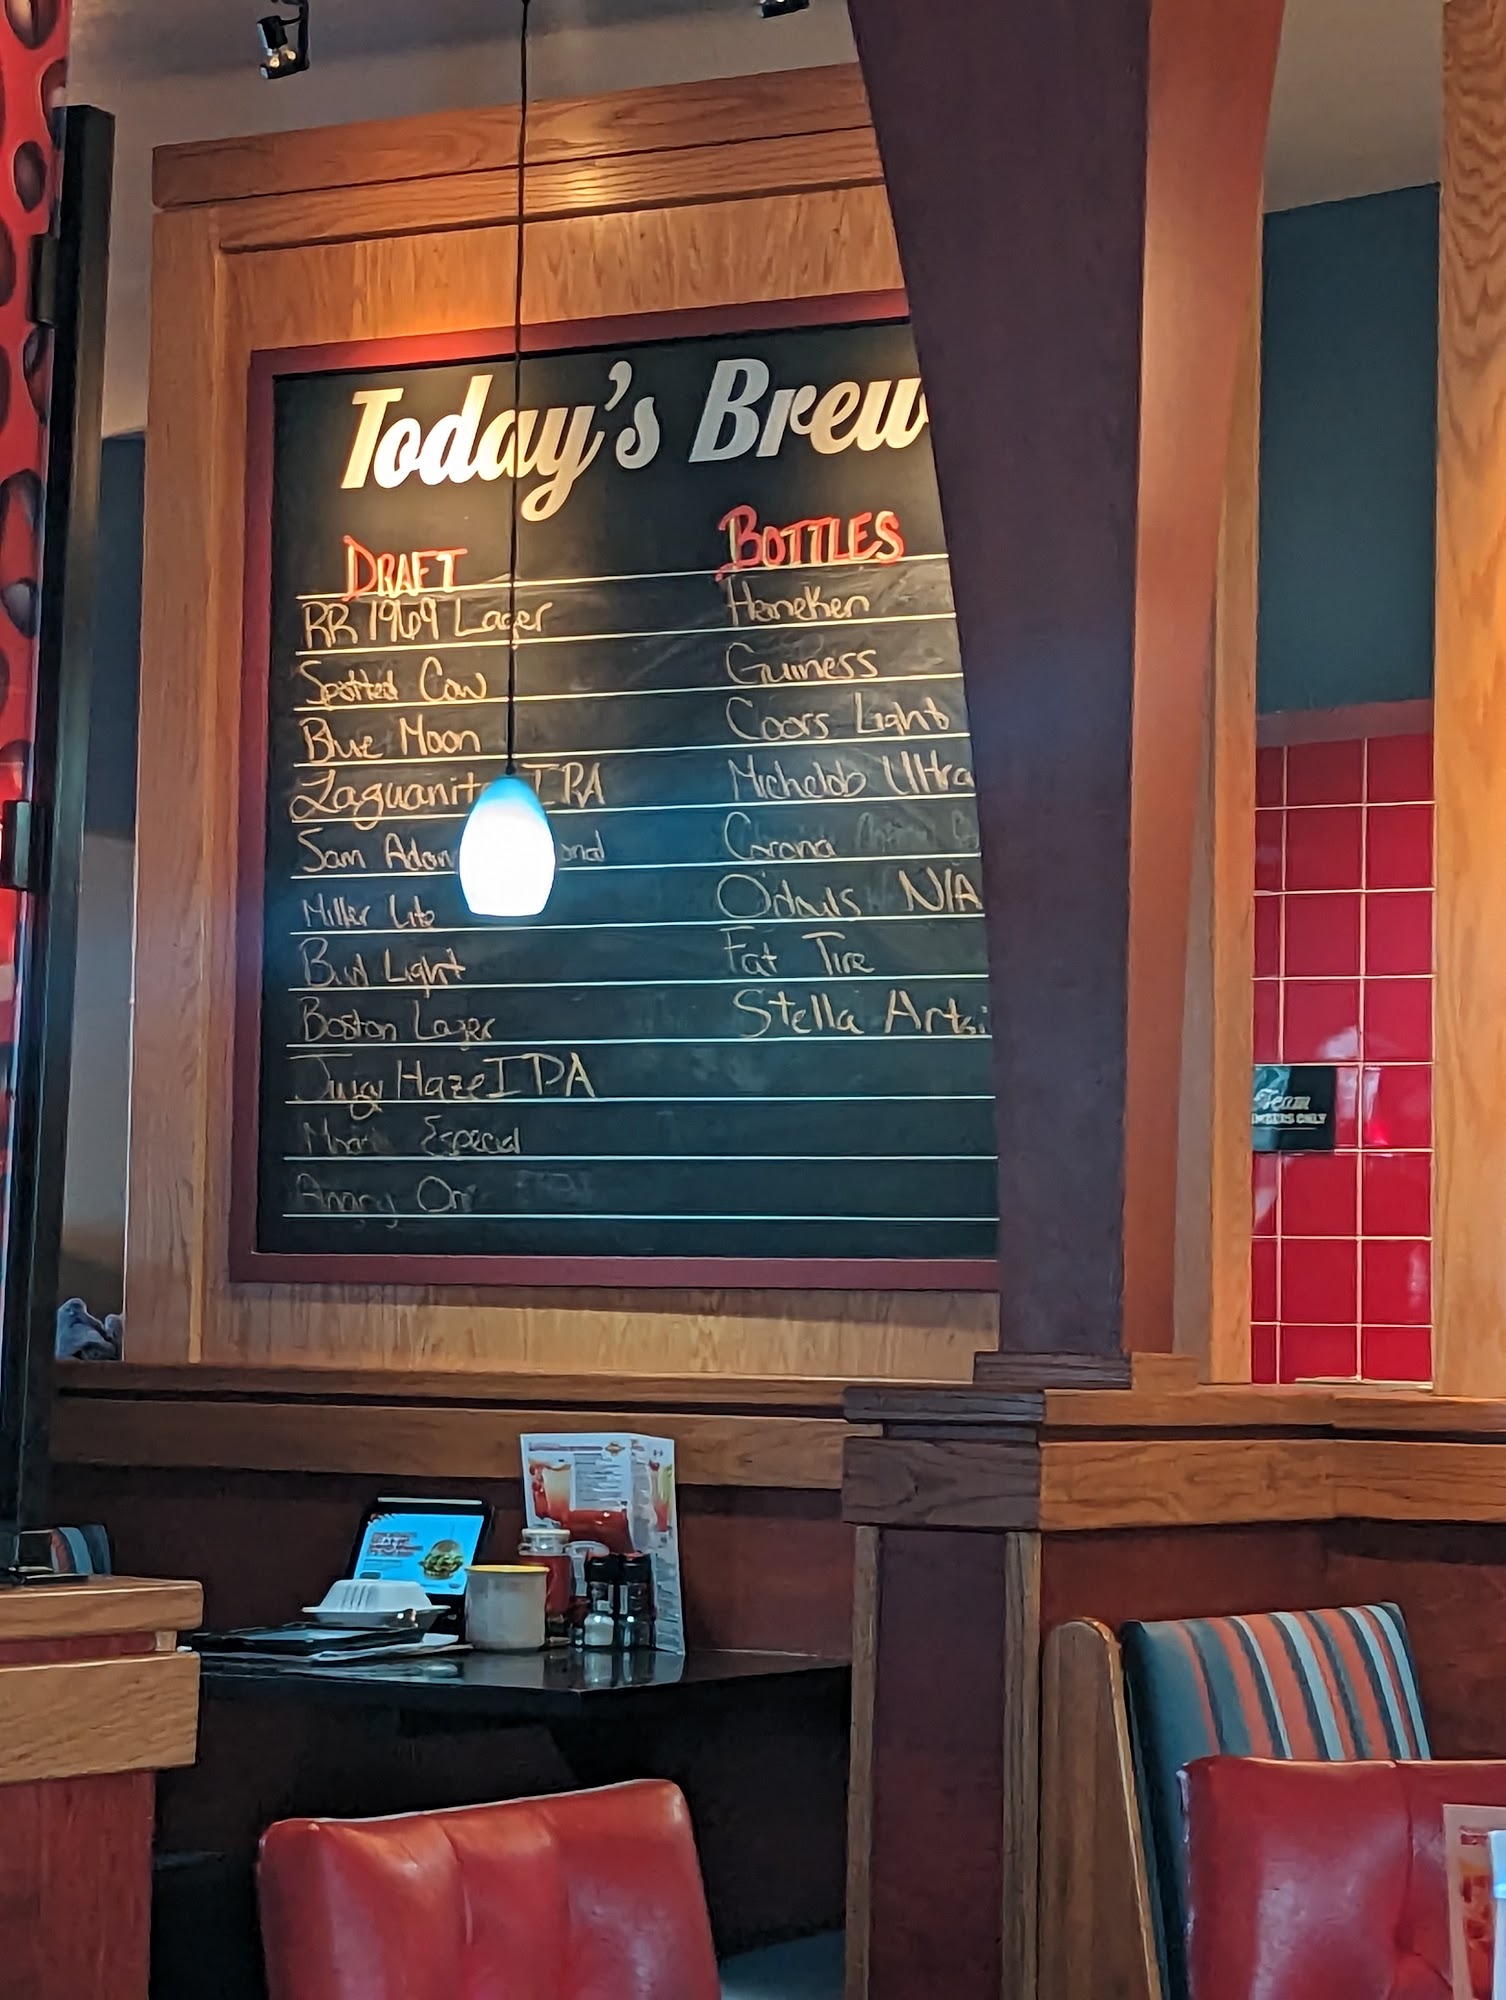 Today's Brew
DRAFT
RR 1969 Lager
Spotted Cow
Blue Moon
IPA
Sam
Miller Lite
Bud Light
Boston Lager
Juicy Haze IPA
Especial
Angry
BOTTLES
Heineken
Guiness
Coors Light
Michelob Ultra
Corona
O'douls N/A
Fat Tire
Stella
Team
ONLY